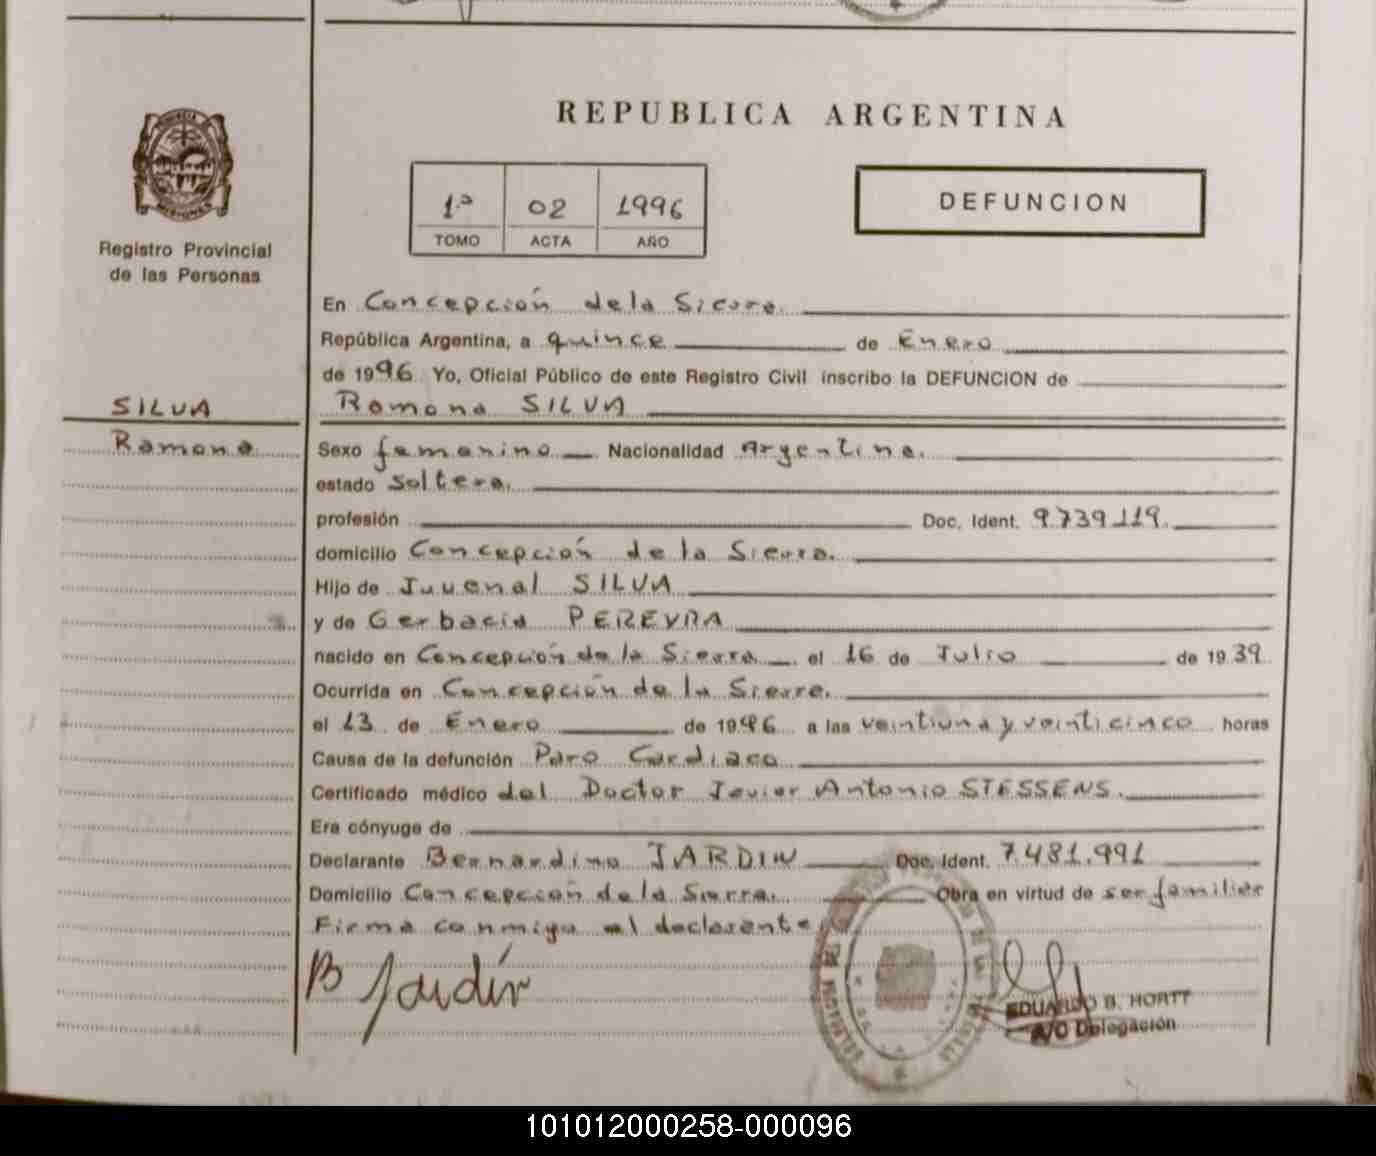 REPUBLICA ARGENTINA
PROVINCIA DE
MISIONES
Registro Provincial
de las Personas
1ª 02 1996
TOMO ACTA AÑO
DEFUNCION
En Concepción de la Sierra.
República Argentina, a quince de Enero
de 1996 Yo, Oficial Público de este Registro Civil inscribo la DEFUNCION de
SILVA
Ramona SILVA
Ramona
Sexo femenino Nacionalidad Argentina.
estado Soltera.
profesión Doc. Ident. 9.739.119.
domicilio Concepción de la Sierra.
Hijo de Juvenal SILVA
y de Gerbacia PEREYRA
nacido en Concepción de la Sierra el 16 de Julio de 1939
Ocurrida en Concepción de la Sierra.
el 13 de Enero de 1996 a las veintiuna y veinticinco horas
Causa de la defunción Paro Cardiaco
Certificado médico del Doctor Javier Antonio STESSENS.
Era cónyuge de
Declarante Bernardino JARDIN Doc. Ident. 7.481.991
Domicilio Concepción de la Sierra. Obra en virtud de ser familiar
Firma conmigo el declarante
B Jardín
EDUARDO B. HORTT
A/C Delegación
101012000258-000096